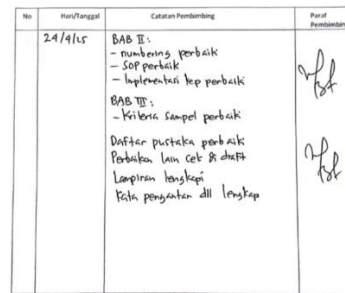 No Hari/Tanggal Catatan Pembimbing Paraf Pembimbing
24/9/25 BAB II :
- numbering perbaik
- SOP perbaik
- Implementasi kep perbaik
BAB III :
- Kriteria Sampel perbaik
Daftar pustaka perbaik
Perbaikan lain cek di draft
Lampiran lengkapi
Kata pengantar dll lengkap